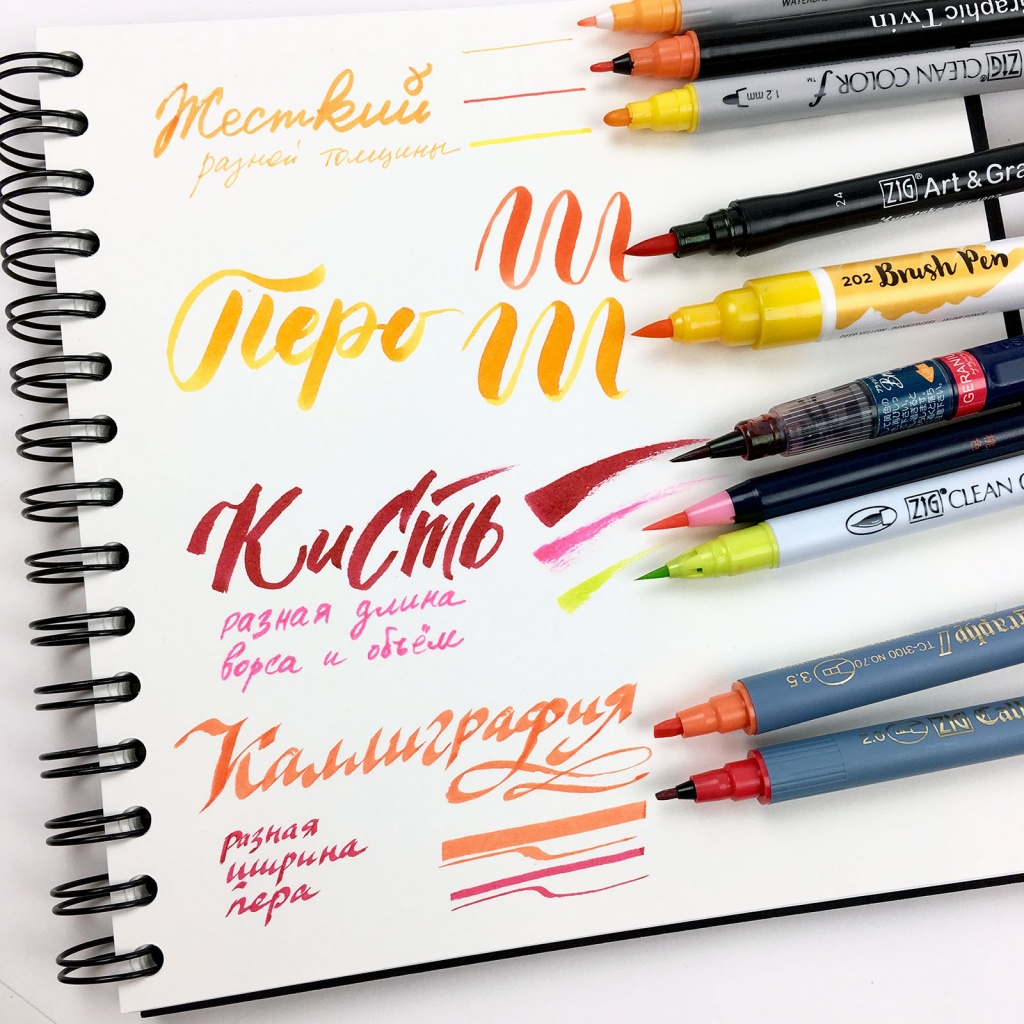 WATERBA
Graphic Twin
Жесткий
ZIG CLEAN COLOR f™
1.2 mm
разной толщины
24
ZIG® Art & Gra
Перо
202 Brush Pen
GERANIU
Кисть
ZIG® CLEAN C
разная длина
ворса и объём
TC-3100 No.70
3.5
Каллиграфия
ZIG Call
2.0
разная
ширина
пера